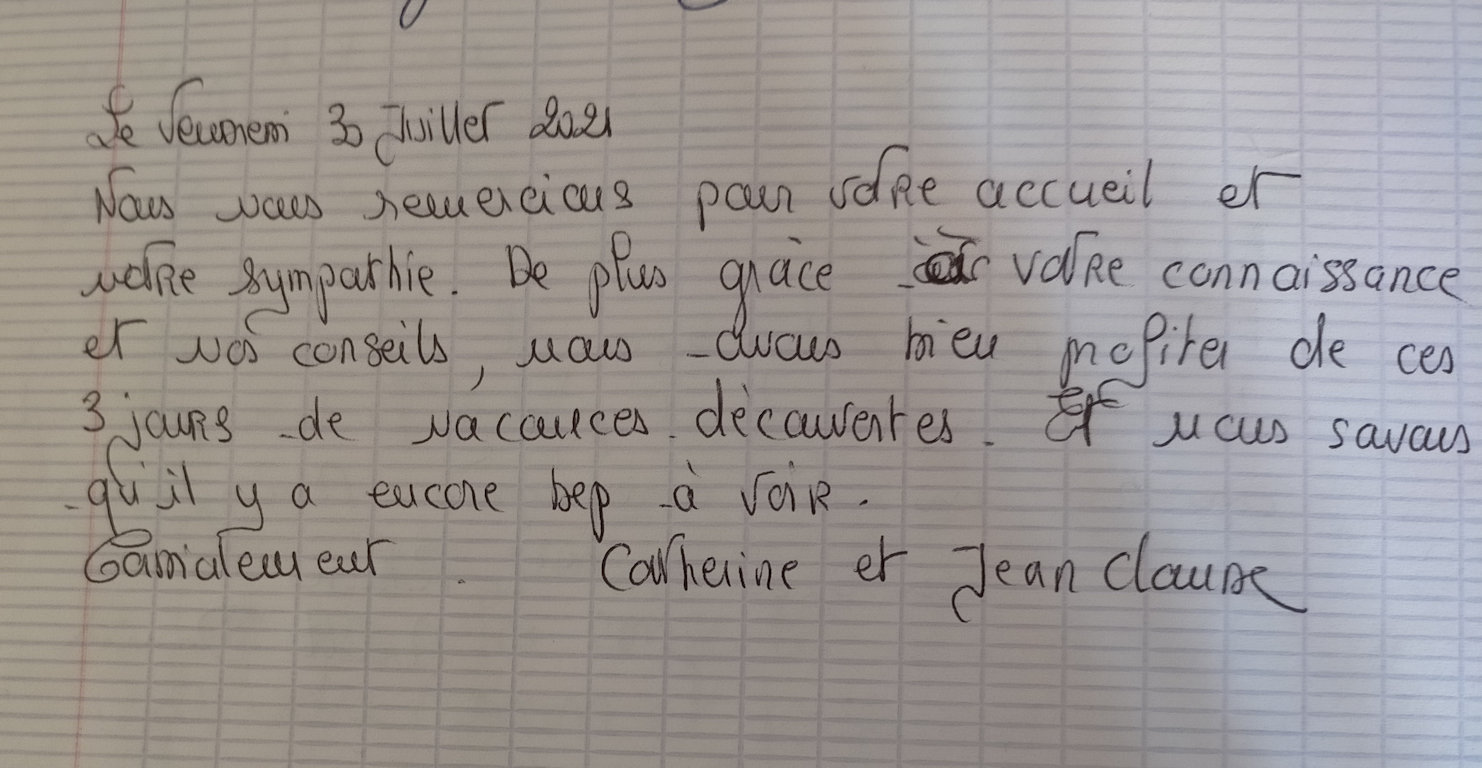 Le Vendredi 30 Juillet 2021
Nous vous remercions pour votre accueil et
votre sympathie. De plus grâce à votre connaissance
et vos conseils, nous avons bien profiter de ces
3 jours de vacances découvertes. Et nous savons
qu'il y a encore bcp à voir.
Cordialement. Catherine et Jean Claude